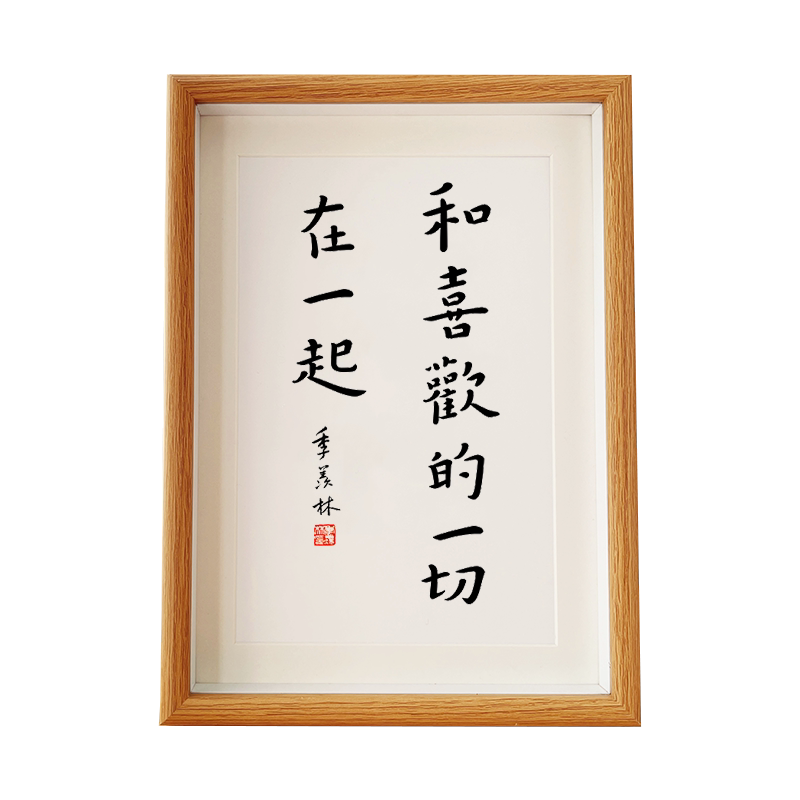 和喜歡的一切
在一起
季羨林